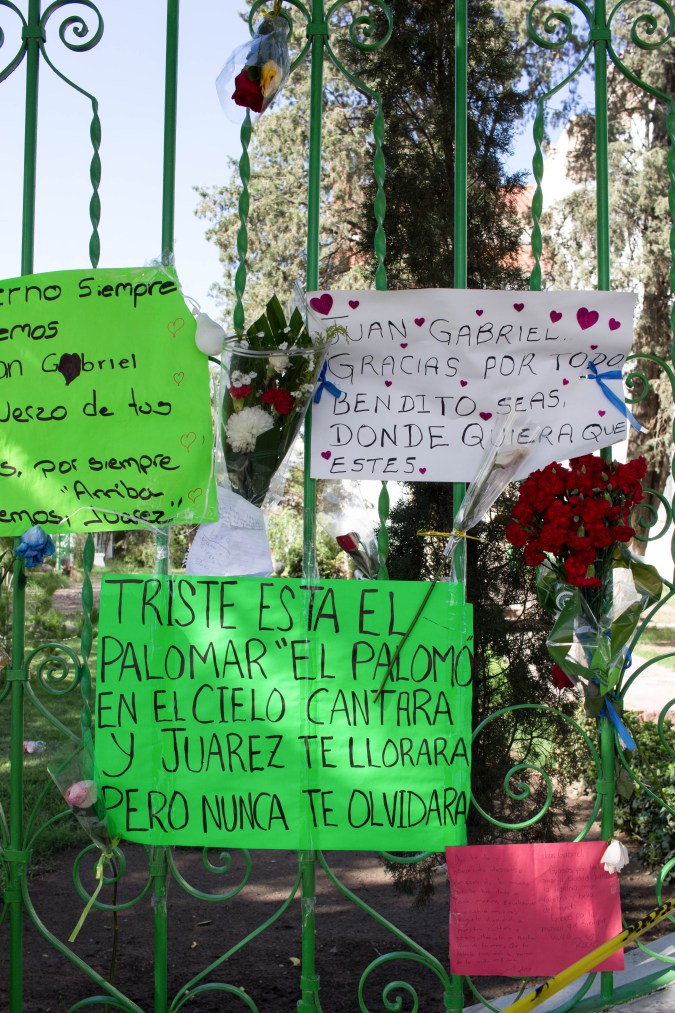 erno Siempre
emos
an Gabriel
uerzo de tus
s, por siempre
"Arriba
emos, Juarez"
JUAN GABRIEL.
GRACIAS POR TODO
BENDITO SEAS,
DONDE QUIERA QUE
ESTES.
TRISTE ESTA EL
PALOMAR "EL PALOMO
EN EL CIELO CANTARA
Y JUAREZ TE LLORARA
PERO NUNCA TE OLVIDARA